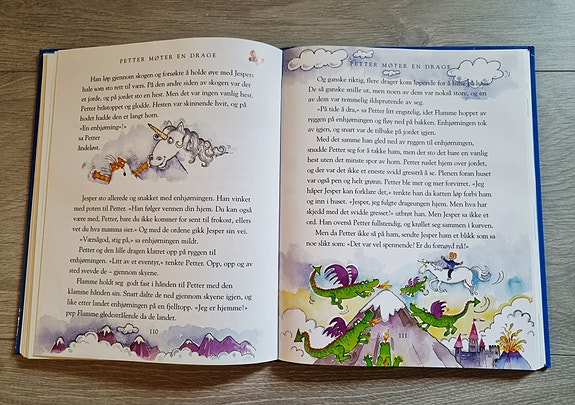 PETTER MØTER EN DRAGE
Han løp gjennom skogen og forsøkte å holde øye med Jespers
hale som sto rett til værs. På den andre siden av skogen var det
et jorde, og på jordet sto en hest. Men det var ingen vanlig hest.
Petter bråstoppet og glodde. Hesten var skinnende hvit, og på
hodet hadde den et langt horn.
«En enhjørning!»
sa Petter
åndeløst.
Jesper sto allerede og snakket med enhjørningen. Han vinket
med poten til Petter. «Han følger vennen din hjem. Du kan også
være med, Petter, bare du ikke kommer for sent til frokost, ellers
vet du hva mamma sier.» Og med de ordene gikk Jesper sin vei.
«Værsågod, stig på,» sa enhjørningen mildt.
Petter og den lille dragen klatret opp på ryggen til
enhjørningen. «Litt av et eventyr,» tenkte Petter. Opp, opp og av
sted svevde de – gjennom skyene.
Flamme holdt seg godt fast i hånden til Petter med den
klamme hånden sin. Snart dalte de ned gjennom skyene igjen, og
like etter landet enhjørningen på en fjelltopp. «Jeg er hjemme!»
pep Flamme gledestrålende da de landet.
110
PETTER MØTER EN DRAGE
Og ganske riktig, flere drager kom løpende for å hilse på ham.
De så ganske snille ut, men noen av dem var nokså store, og en
av dem var temmelig ildsprutende av seg.
«På tide å dra,» sa Petter litt engstelig, idet Flamme hoppet av
ryggen til enhjørningen og fløy ned på bakken. Enhjørningen tok
av igjen, og snart var de tilbake på jordet igjen.
Med det samme han gled ned av ryggen til enhjørningen,
snudde Petter seg for å takke ham, men der sto det bare en vanlig
hest uten det minste spor av horn. Petter ruslet hjem over jordet,
og der var det ikke et eneste svidd gresstrå å se. Plenen foran huset
var også pen og helt grønn. Petter ble mer og mer forvirret. «Jeg
håper Jesper kan forklare det,» tenkte han da katten løp forbi ham
og inn i huset. «Jesper, jeg fulgte drageungen hjem. Men hva har
skjedd med det svidde gresset?» utbrøt han. Men Jesper sa ikke et
ord. Han overså Petter fullstendig, og krøllet seg sammen i kurven.
Men da Petter ikke så på ham, sendte Jesper ham et blikk som sa
noe slikt som: «Det var vel spennende! Er du fornøyd nå?»
111